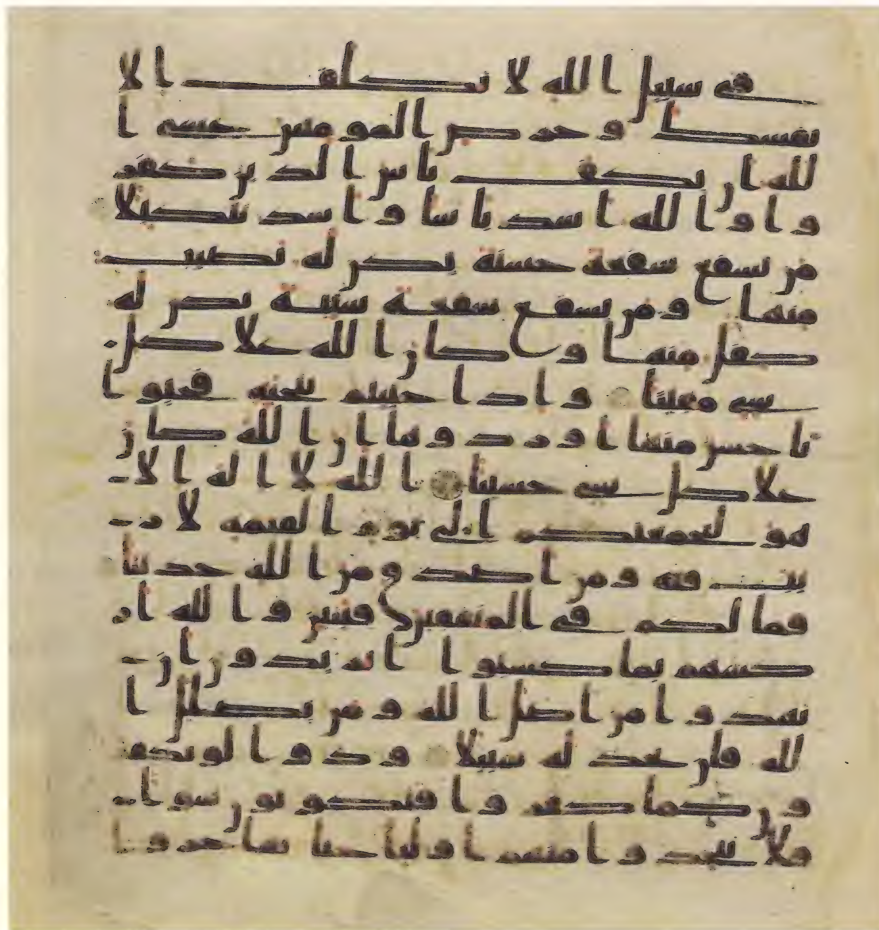 في سبيل الله لا تكلف الا
نفسك وحرض المومنين عسى ا
لله ان يكف باس الذين كفر
وا والله اشد باسا واشد تنكيلا
من يشفع شفعة حسنة يكن له نصيب
منها ومن يشفع شفعة سيئة يكن له
كفل منها وكان الله علا كل
شي مقيتا واذا حييتم بتحية فحيوا
باحسن منها او ردوها ان الله كان
علا كل شي حسيبا الله لا اله الا
هو ليجمعنكم الى يوم القيمة لا ر
يب فيه ومن اصدق من الله حديثا
فما لكم في المنفقين فئتين والله ار
كسهم بما كسبوا اتريدون ان
تهدوا من اضل الله ومن يضلل ا
لله فلن تجد له سبيلا ودوا لو تكفر
ون كما كفروا فتكونون سوا
فلا تتخذوا منهم اوليا حتى يهاجروا